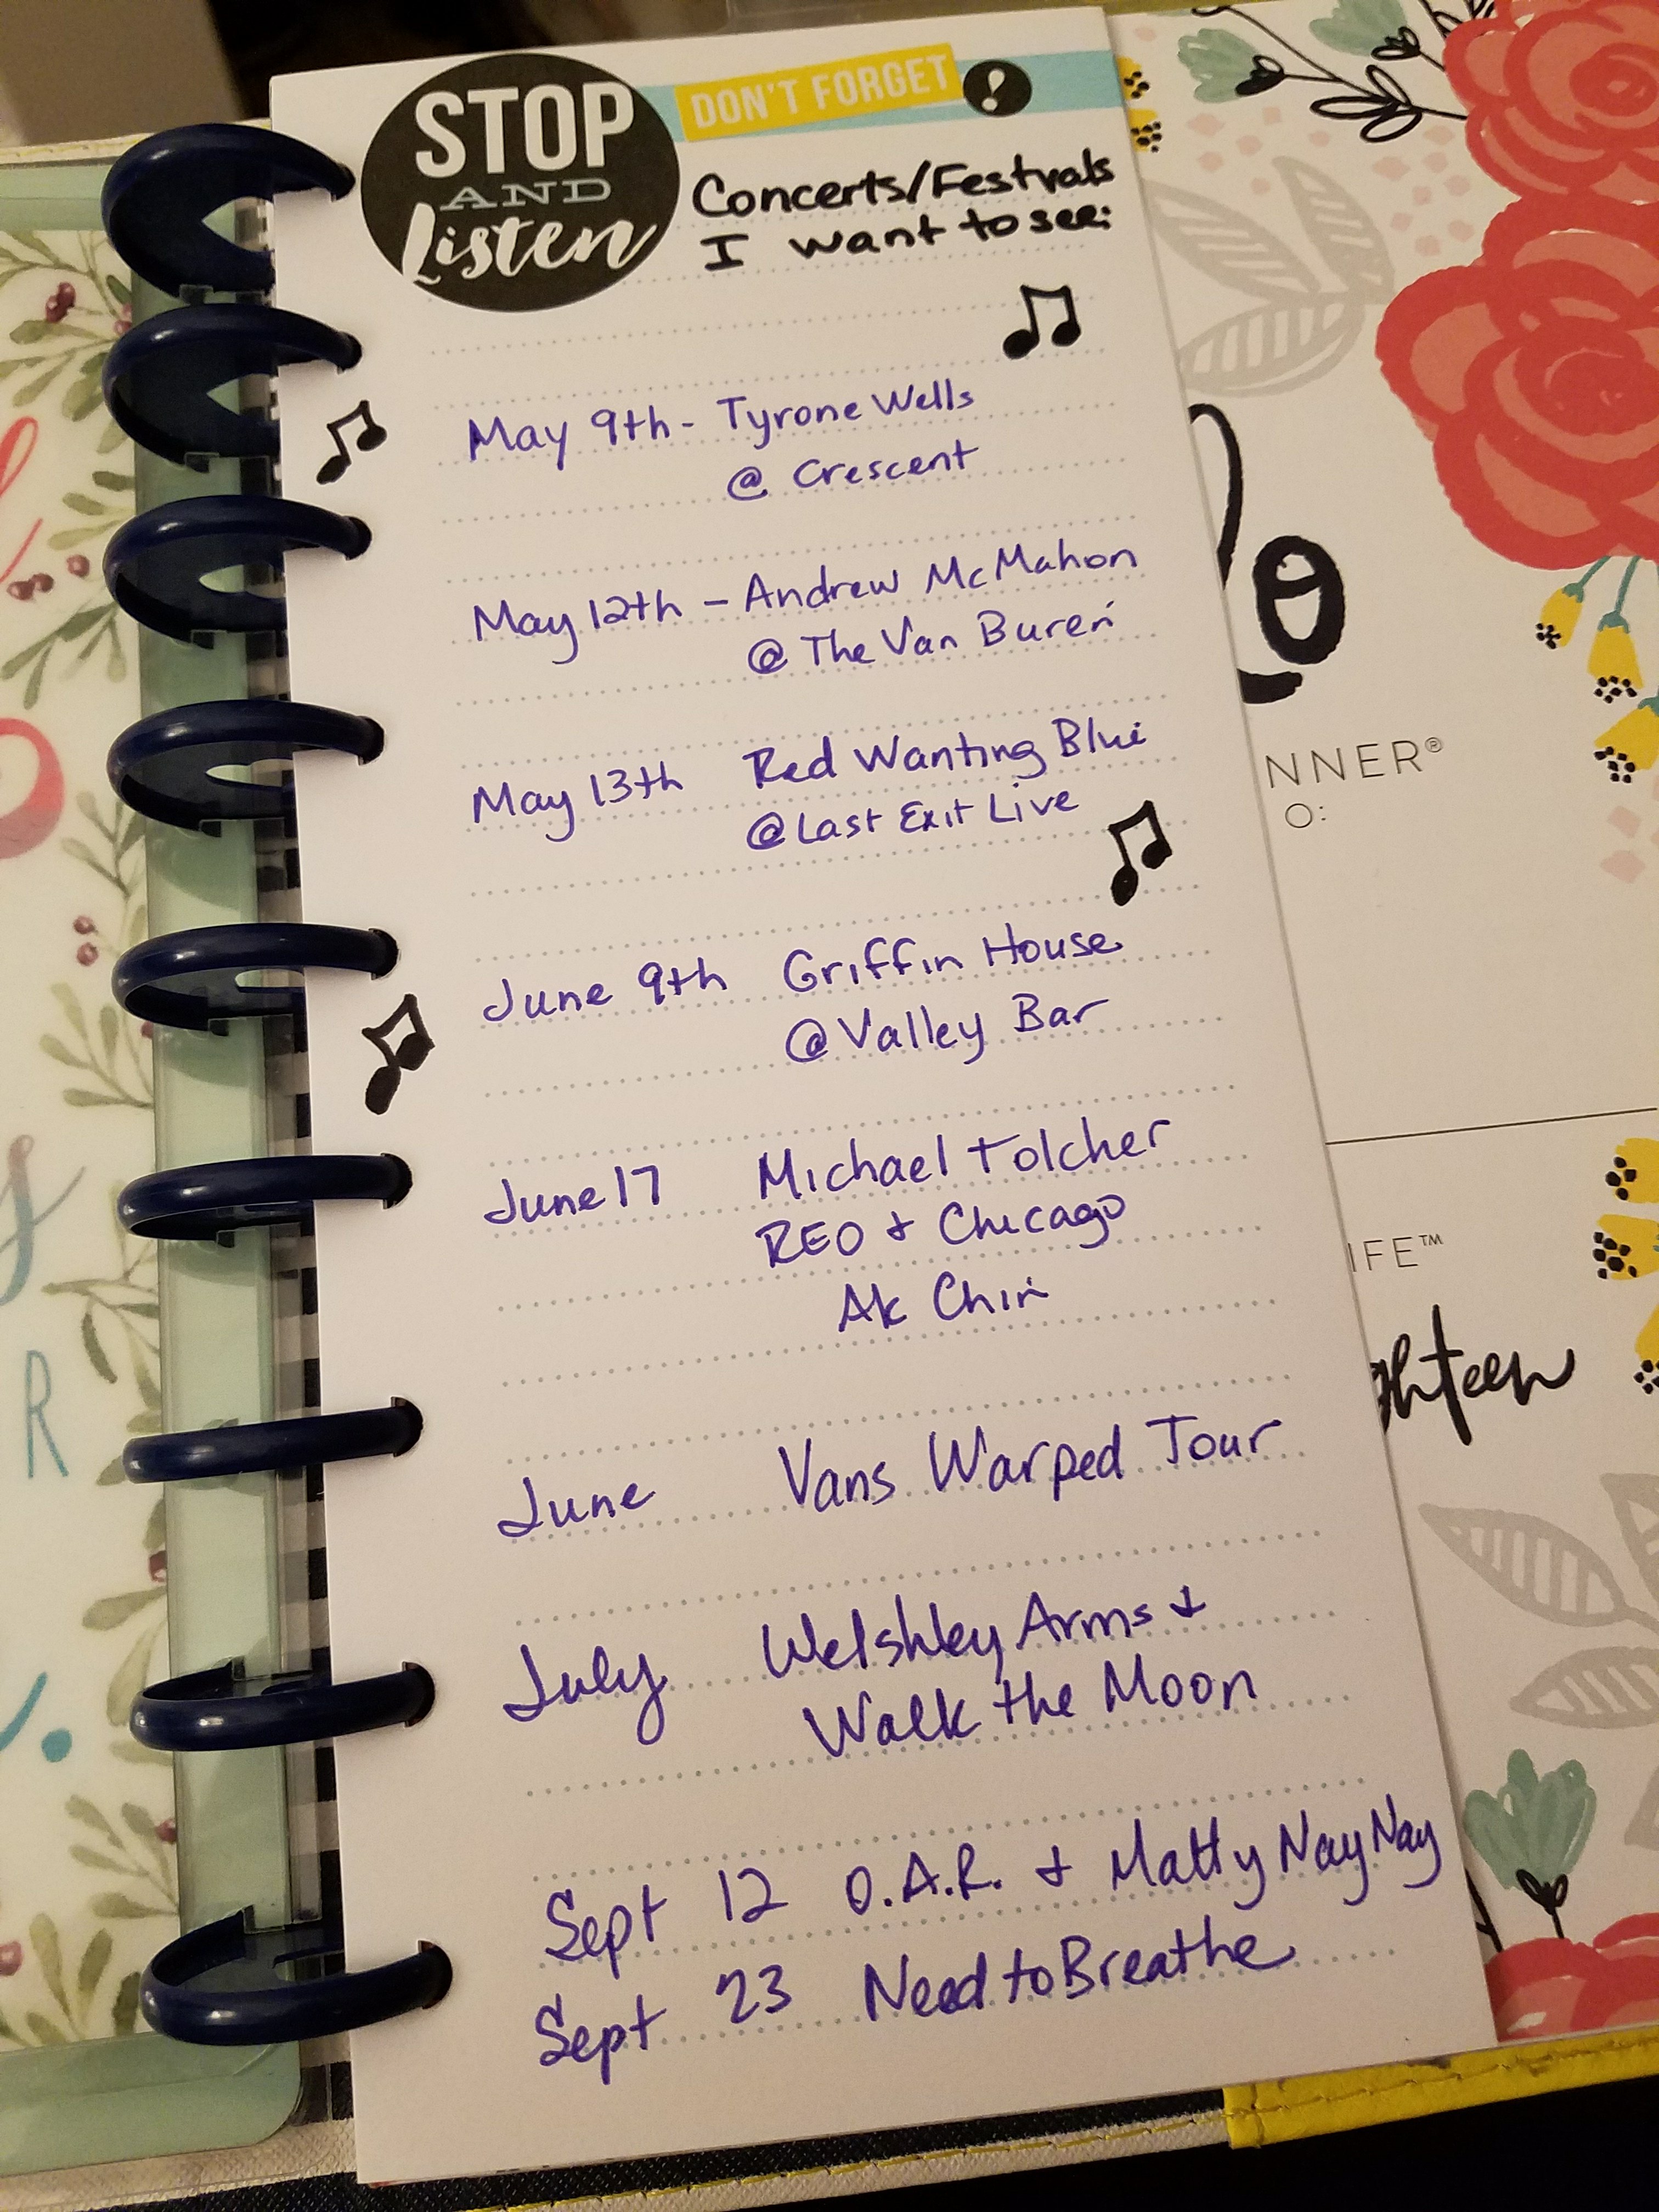 STOP
AND
Listen
DON'T FORGET !
Concerts/Festivals
I want to see:
May 9th - Tyrone Wells
@ Crescent
May 12th - Andrew McMahon
@ The Van Buren
May 13th Red Wanting Blue
@ Last Exit Live
June 9th Griffin House
@ Valley Bar
June 17 Michael Tolcher
REO & Chicago
Ak Chin
June Vans Warped Tour
July Welshley Arms &
Walk the Moon
Sept 12 O.A.R. & Matty Nay Nay
Sept 23 Need to Breathe
NNER®
O:
IFE™
ghteen
R